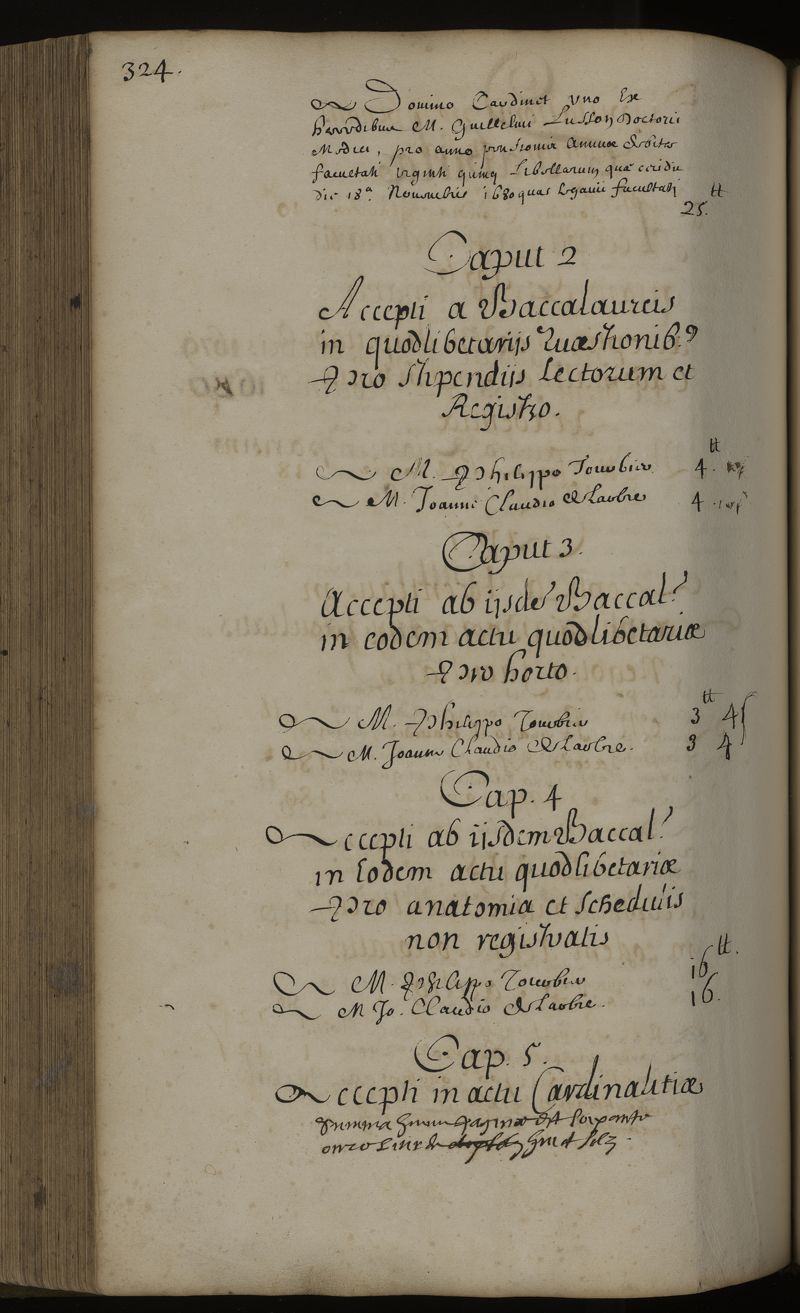 324.
A Domino Cardinet uno Ex
hæredibus M. Guillelmi Lusson Doctoris
Medici, pro anno pensionis annuæ debitæ
facultati viginti quinq libellarum quæ cecidit
die 18ª Novembris 1680 quas legavit facultati
tt
25.
Caput 2
Accepti a Baccalaureis
in quodlibetariis Quæstionib9
Pro stipendiis Lectorum et
Registro.
tt
A M. Philippo Doubrn 4.
A M. Joanne Claudio Delaubre 4
Caput 3.
Accepti ab iisde Baccal.
in eodem actu quodlibetariæ
Pro horto.
tt
A M. Philippo 3 4
A M. Joanne Claudio Delaubre. 3 4
Cap. 4
Accepti ab iisdem Baccal.
in Eodem actu quodlibetariæ
Pro anatomia et schedulis
non registratis
tt.
A M. Philippo 16
A M Jo. Claudio Delaubre. 16.
Cap. 5.
Accepti in actu Cardinalitiæ
Summa huius paginæ Est